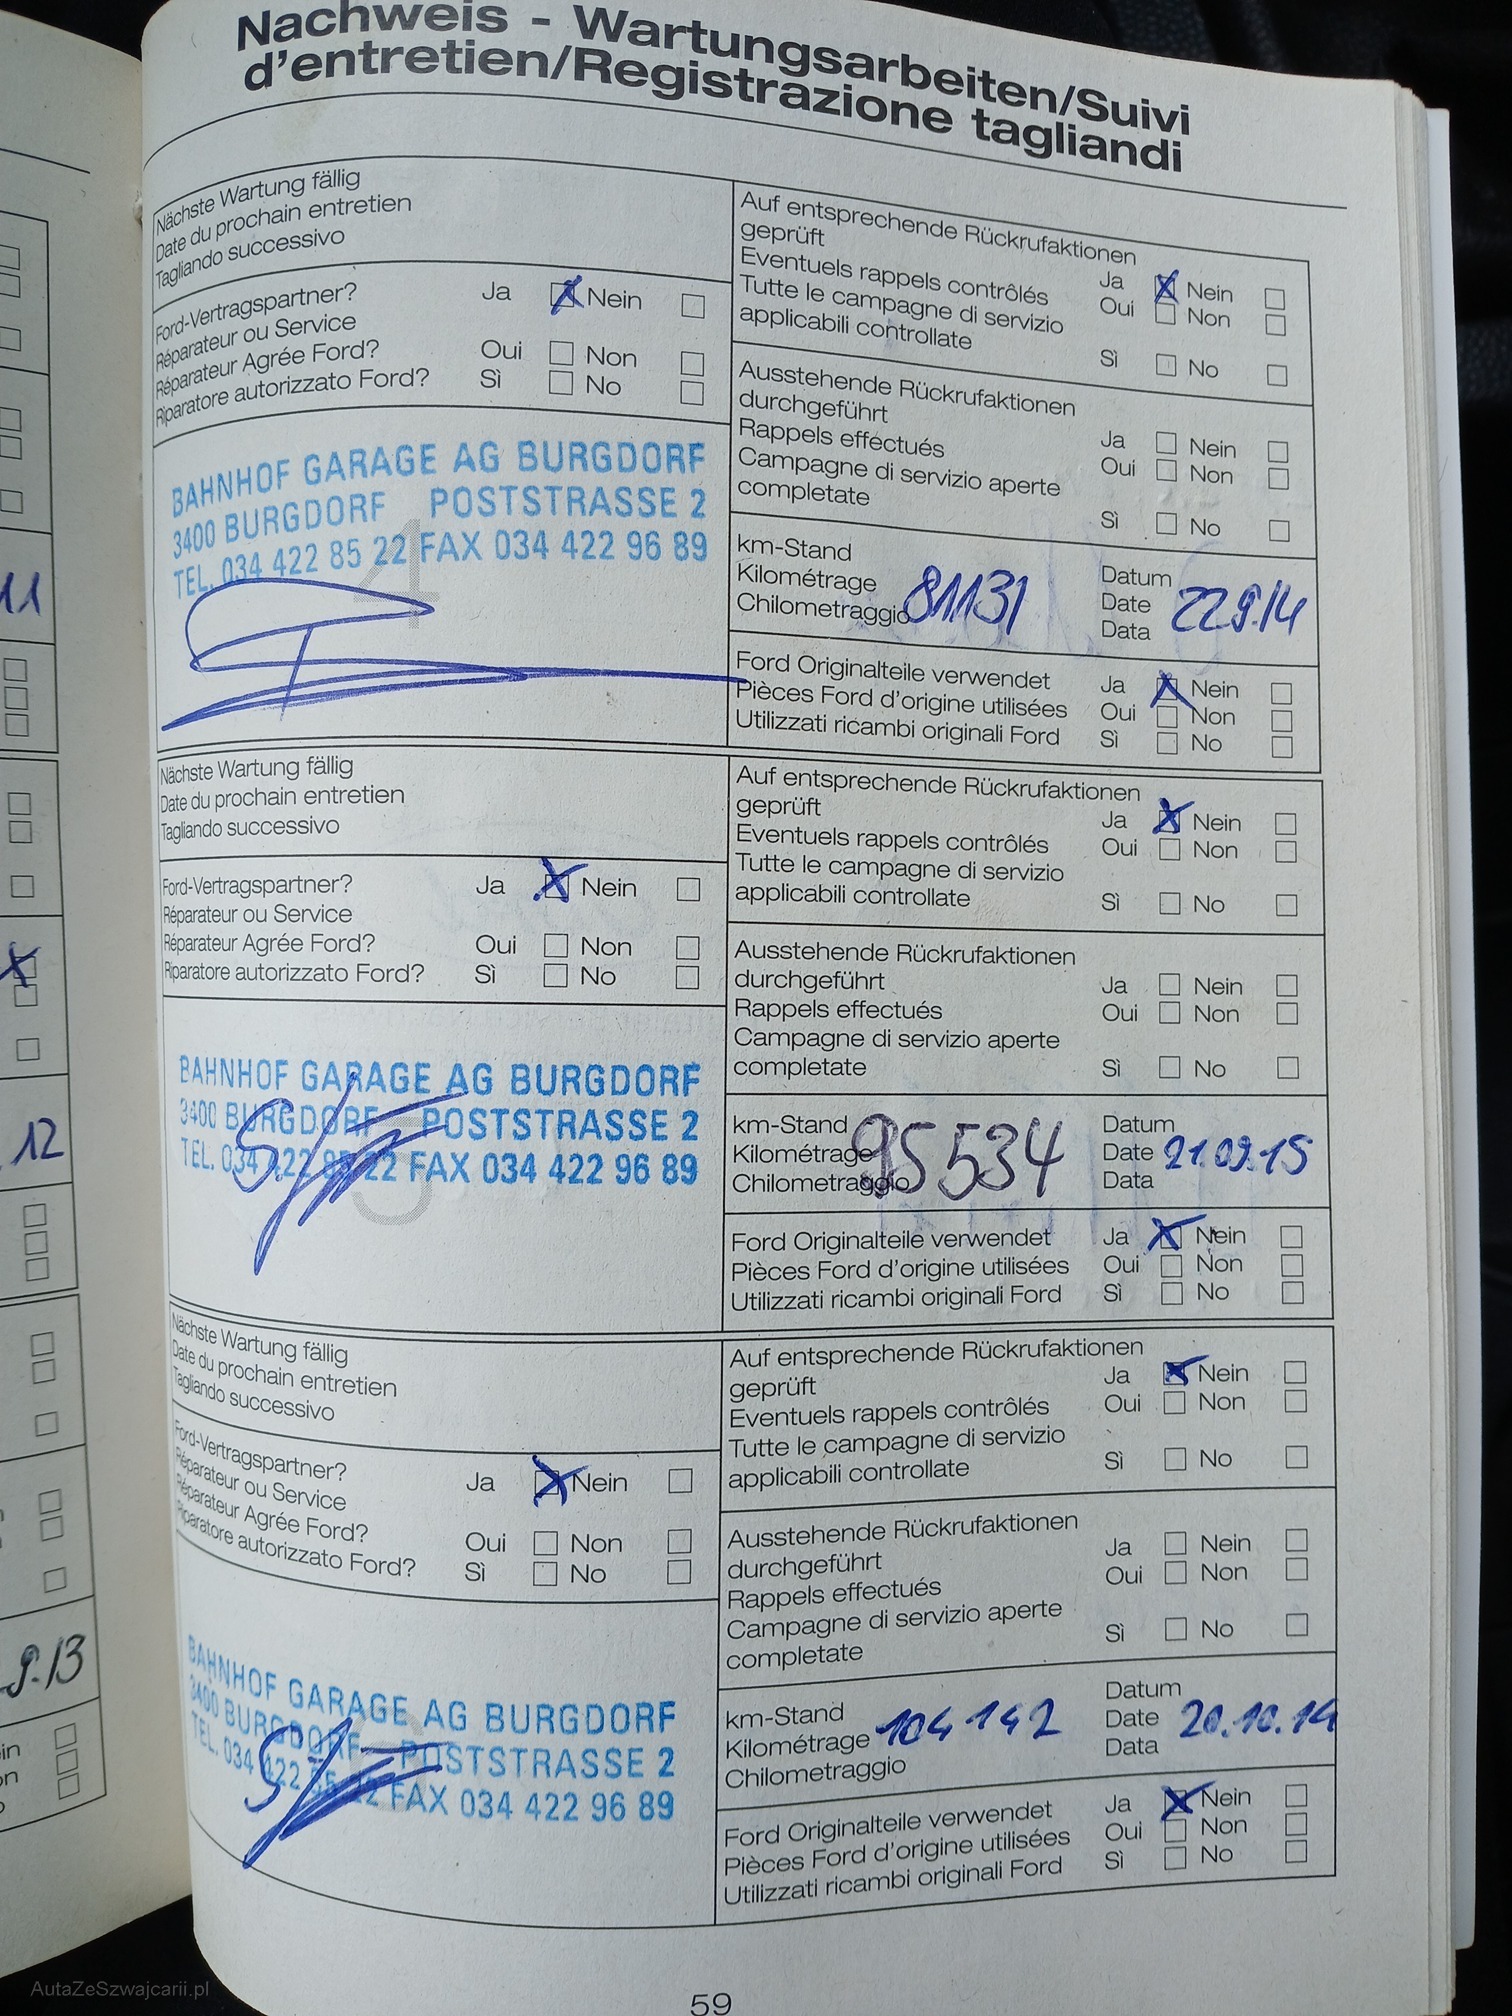 Nachweis - Wartungsarbeiten/Suivi
d'entretien/Registrazione tagliandi
Nächste Wartung fällig
Date du prochain entretien
Tagliando successivo
Ford-Vertragspartner?
Réparateur ou Service
Réparateur Agrée Ford?
Riparatore autorizzato Ford?
Ja Nein
Oui Non
Sì No
BAHNHOF GARAGE AG BURGDORF
3400 BURGDORF POSTSTRASSE 2
TEL. 034 422 85 22 FAX 034 422 96 89
4
Auf entsprechende Rückrufaktionen
geprüft
Eventuels rappels contrôlés
Tutte le campagne di servizio
applicabili controllate
Ja Nein
Oui Non
Sì No
Ausstehende Rückrufaktionen
durchgeführt
Rappels effectués
Campagne di servizio aperte
completate
Ja Nein
Oui Non
Sì No
km-Stand
Kilométrage
Chilometraggio
81131
Datum
Date
Data
22.9.14
Ford Originalteile verwendet
Pièces Ford d'origine utilisées
Utilizzati ricambi originali Ford
Ja Nein
Oui Non
Sì No
Nächste Wartung fällig
Date du prochain entretien
Tagliando successivo
Ford-Vertragspartner?
Réparateur ou Service
Réparateur Agrée Ford?
Riparatore autorizzato Ford?
Ja Nein
Oui Non
Sì No
BAHNHOF GARAGE AG BURGDORF
3400 BURGDORF POSTSTRASSE 2
TEL. 034 422 85 22 FAX 034 422 96 89
Auf entsprechende Rückrufaktionen
geprüft
Eventuels rappels contrôlés
Tutte le campagne di servizio
applicabili controllate
Ja Nein
Oui Non
Sì No
Ausstehende Rückrufaktionen
durchgeführt
Rappels effectués
Campagne di servizio aperte
completate
Ja Nein
Oui Non
Sì No
km-Stand
Kilométrage
Chilometraggio
95534
Datum
Date
Data
21.09.15
Ford Originalteile verwendet
Pièces Ford d'origine utilisées
Utilizzati ricambi originali Ford
Ja Nein
Oui Non
Sì No
Nächste Wartung fällig
Date du prochain entretien
Tagliando successivo
Ford-Vertragspartner?
Réparateur ou Service
Réparateur Agrée Ford?
Riparatore autorizzato Ford?
Ja Nein
Oui Non
Sì No
BAHNHOF GARAGE AG BURGDORF
3400 BURGDORF POSTSTRASSE 2
TEL. 034 422 85 22 FAX 034 422 96 89
Auf entsprechende Rückrufaktionen
geprüft
Eventuels rappels contrôlés
Tutte le campagne di servizio
applicabili controllate
Ja Nein
Oui Non
Sì No
Ausstehende Rückrufaktionen
durchgeführt
Rappels effectués
Campagne di servizio aperte
completate
Ja Nein
Oui Non
Sì No
km-Stand
Kilométrage
Chilometraggio
104142
Datum
Date
Data
Ford Originalteile verwendet
Pièces Ford d'origine utilisées
Utilizzati ricambi originali Ford
Ja Nein
Oui Non
Sì No
59
11
12
9.13
AutaZeSzwajcarii.pl